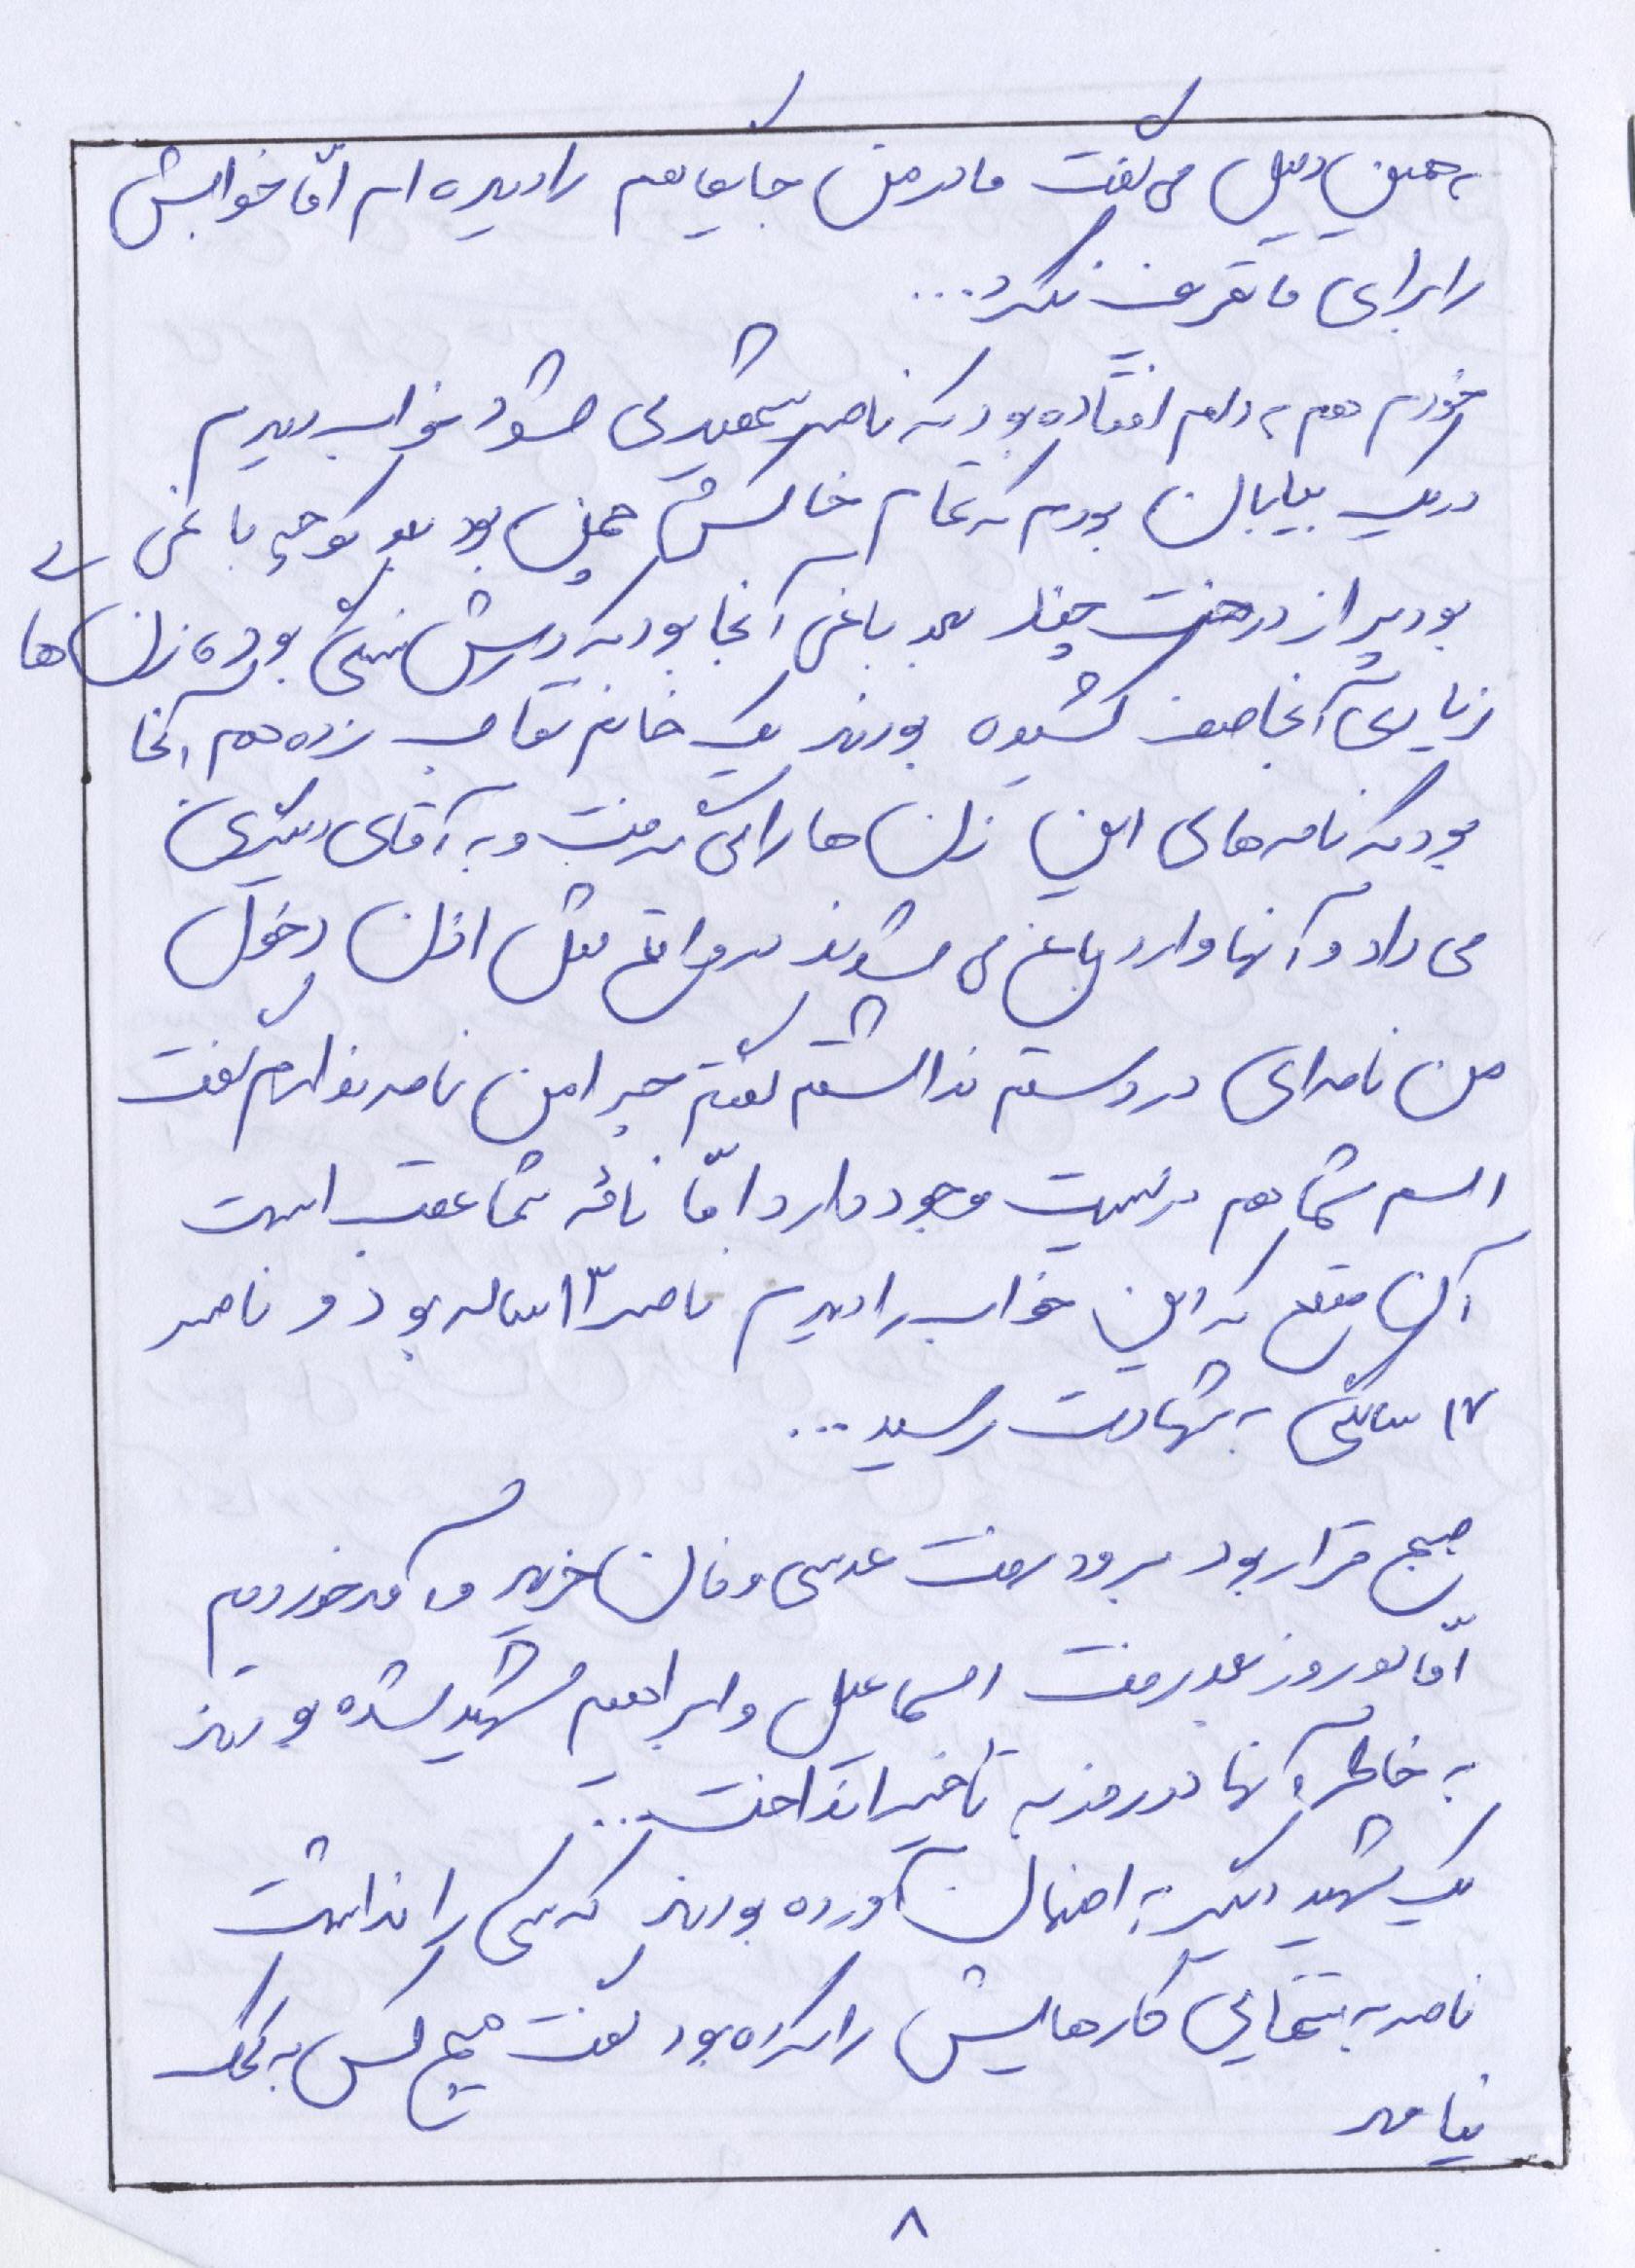 به همین دلیل می گفت مادر من جایگاهم را دیده ام امّا خوابش
را برای ما تعریف نکرد...
خودم هم به دلم افتاده بود که ناصر شهید می شود خواب دیدم
در یک بیابان بودم که تمام خاکش چمن بود بعد کوچه باغی
بود پر از درخت چنار بعد باغی آنجا بود که درش سنگی بود، زن ها
زیادی آنجا صف کشیده بودند یک خانم نقاب زده هم آنجا
بود که نامه های این زن ها را می گرفت و به آقای دیگری
می داد و آنها وارد باغ می شدند در واقع مثل اذن دخول
من نامه ای در دستم نداشتم گفتم چرا من نامه ندارم گفت
اسم شما هم در لیست وجود دارد امّا نامه شما عقب است
آن موقع که این خواب را دیدم ناصر ۱۳ ساله بود و ناصر
۱۷ سالگی به شهادت رسید...
صبح قرار بود برود رفت عدسی و نان خرید و آمد خوردیم
امّا دو روز بعد رفت اسماعیل و ابراهیم شهید شده بودند
به خاطر آنها دو روز به تاخیر انداخت...
یک شهید دیگر به اصفهان آورده بودند که کسی را نداشت
ناصر به تنهایی کارهایش را کرده بود گفت هیچ کس به کمک
نیامد
۸